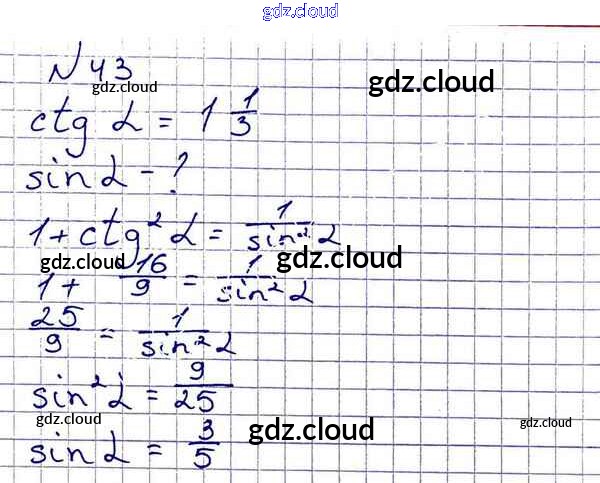 gdz.cloud
N 43
gdz.cloud gdz.cloud
ctg α = 1 1/3
sin α - ?
1 + ctg² α = 1/sin² α
gdz.cloud gdz.cloud
1 + 16/9 = 1/sin² α
25/9 = 1/sin² α
sin² α = 9/25
gdz.cloud gdz.cloud gdz.cloud
sin α = 3/5